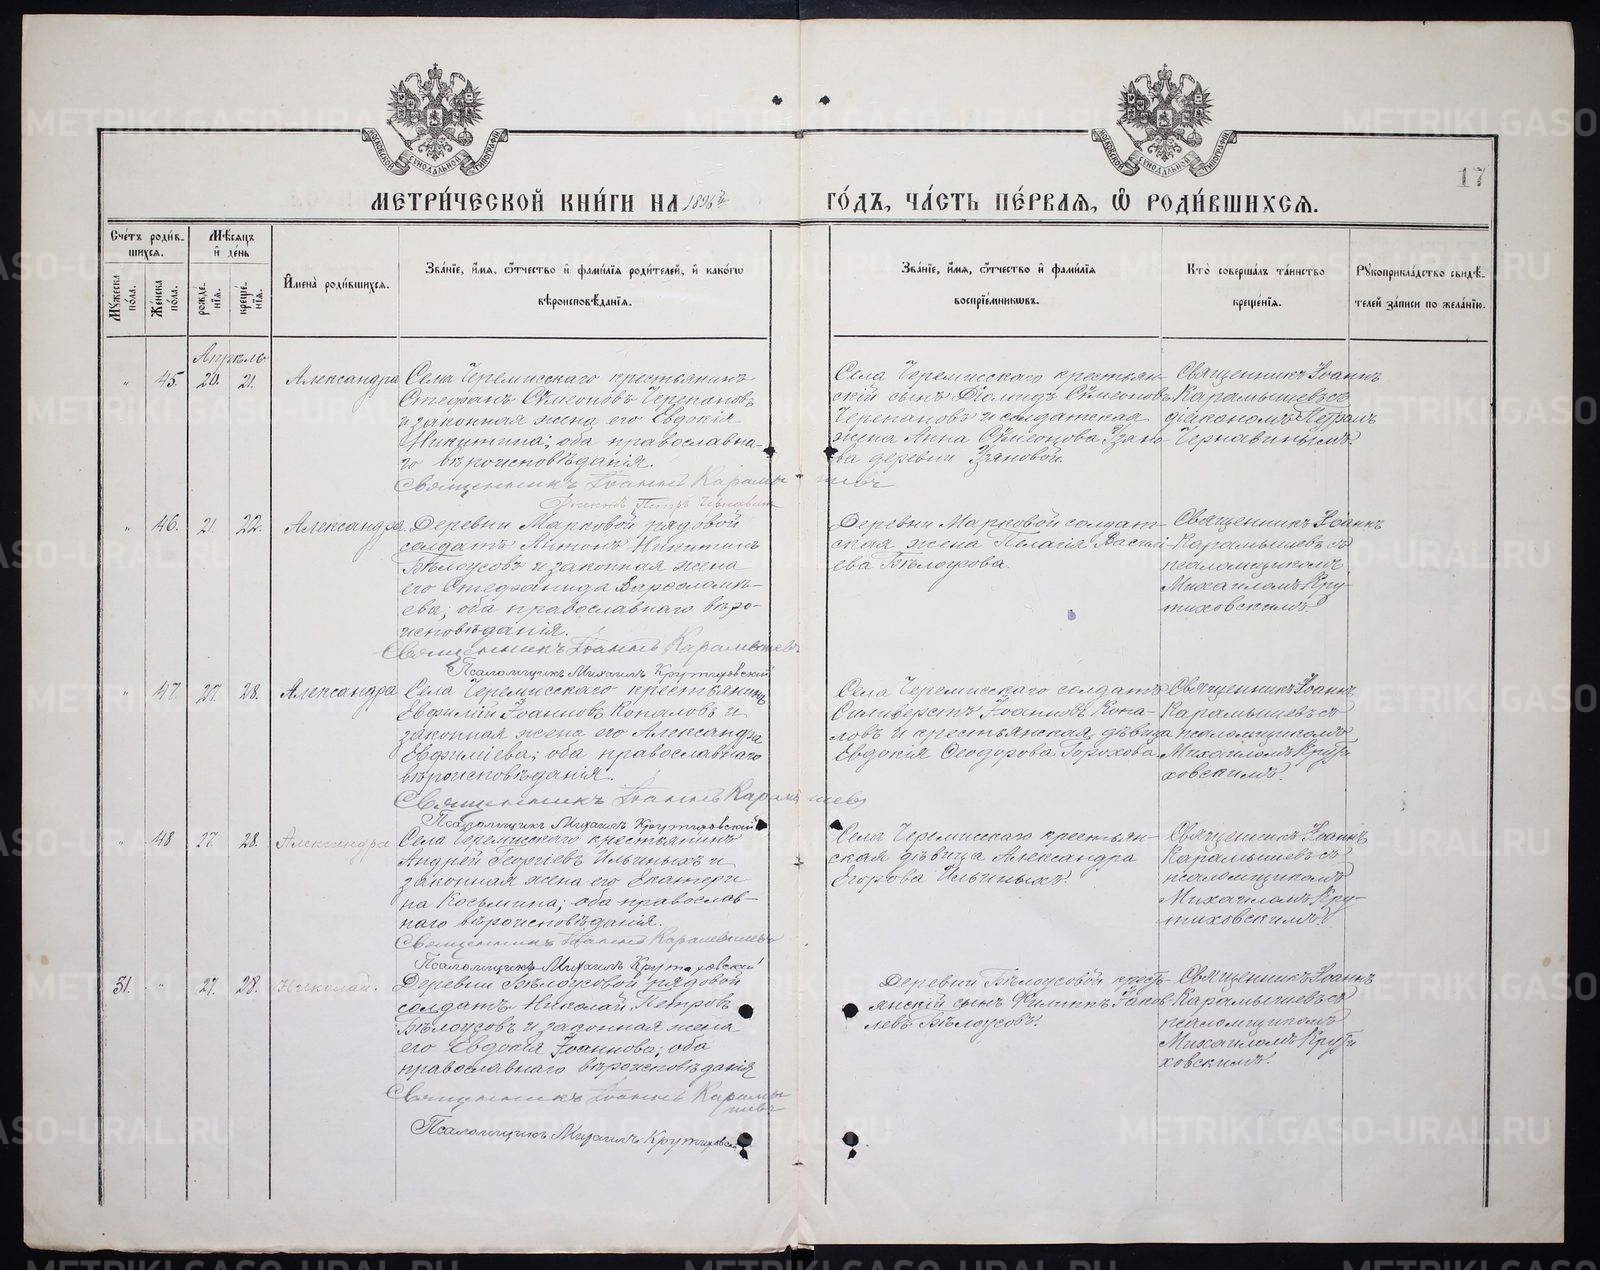 17
МЕТРИ́ЧЕСКОЙ КНИ́ГИ НА 1896й
ГО́ДЪ, ЧА́СТЬ ПЕ́РВАѦ, Ѽ РОДИ́ВШИХСѦ.
Сче́тъ роди́в-
шихсѧ.
Мꙋ́жеска по́ла.
Же́нска по́ла.
Мѣ́сѧцъ и҆ де́нь
рожде́нїѧ.
креще́нїѧ.
И҆мена̀ роди́вшихсѧ.
Зва́нїе, и҆́мѧ, ѻ҆́тчество и҆ фами́лїѧ роди́телей, и҆ како́гѡ
вѣроисповѣ́данїѧ.
Зва́нїе, и҆́мѧ, ѻ҆́тчество и҆ фами́лїѧ
воспрїе́мникѡвъ.
Кто̀ соверша́лъ та́инство
креще́нїѧ.
Рꙋкоприкла́дство свидѣ́-
телей за́писи по жела́нїю.
Апрѣль
" 45. 20. 21. Александра
Села Черемисскаго крестьянинъ
Стефанъ Сѵмеоновъ Черепановъ
и законная жена его Евдокія
Никитина; оба православна-
го вѣроисповѣданія.
Священникъ Іоаннъ Карамышевъ
Діаконъ Петръ Чернавинъ
Села Черемисскаго крестьян-
скій сынъ Діомидъ Сѵмеоновъ
Черепановъ и солдатская
жена Анна Сѵмеонова Узяно-
ва деревни Узяновой.
Священникъ Іоаннъ
Карамышевъ съ
діакономъ Петромъ
Чернавинымъ.
" 46. 21. 22. Александра
Деревни Марковой рядовой
солдатъ Антонъ Никитинъ
Бѣлоусовъ и законная жена
его Стефанида Варѳоломѣ-
ева; оба православнаго вѣро-
исповѣданія.
Священникъ Іоаннъ Карамышевъ
Псаломщикъ Михаилъ Крутиховскій
Деревни Марковой солдат-
ская жена Пелагія Васильи-
ева Бѣлоусова.
Священникъ Іоаннъ
Карамышевъ съ
псаломщикомъ
Михаиломъ Кру-
тиховскимъ.
" 47. 27. 28. Александра
Села Черемисскаго крестьянинъ
Евфимій Іоанновъ Копаловъ и
законная жена его Александра
Евфиміева; оба православнаго
вѣроисповѣданія.
Священникъ Іоаннъ Карамышевъ
Псаломщикъ Михаилъ Крутиховскій
Села Черемисскаго солдатъ
Силиверстъ Іоанновъ Копа-
ловъ и крестьянская дѣвица
Евдокія Ѳеодорова Горохова.
Священникъ Іоаннъ
Карамышевъ съ
псаломщикомъ
Михаиломъ Крути-
ховскимъ.
" 48. 27. 28. Александра
Села Черемисскаго крестьянинъ
Андрей Георгіевъ Ильиныхъ и
законная жена его Екатери-
на Косьмина; оба православ-
наго вѣроисповѣданія.
Священникъ Іоаннъ Карамышевъ
Псаломщикъ Михаилъ Крутиховскій
Села Черемисскаго крестьян-
ская дѣвица Александра
Егорова Ильиныхъ.
Священникъ Іоаннъ
Карамышевъ съ
псаломщикомъ
Михаиломъ Кру-
тиховскимъ.
51. " 27. 28. Николай.
Деревни Бѣлоусовой рядовой
солдатъ Николай Петровъ
Бѣлоусовъ и законная жена
его Евдокія Іоаннова; оба
православнаго вѣроисповѣданія
Священникъ Іоаннъ Карамы
шевъ
Псаломщикъ Михаилъ Крутиховскій
Деревни Бѣлоусовой кресть-
янскій сынъ Филиппъ Іаков-
левъ Бѣлоусовъ.
Священникъ Іоаннъ
Карамышевъ съ
псаломщикомъ
Михаиломъ Крути
ховскимъ.
METRIKI.GASO-URAL.RU